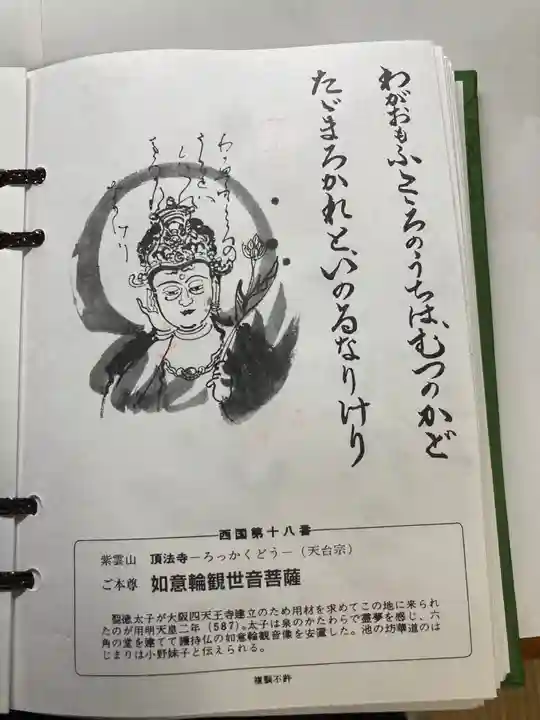 わがおもふこゝろのうちは、むつのかど
たゞまろかれと、いのるなりけり
西国第十八番
紫雲山 頂法寺―ろっかくどう―(天台宗)
ご本尊 如意輪観世音菩薩
聖徳太子が大阪四天王寺建立のため用材を求めてこの地に来られ
たのが用明天皇二年(587)。太子は泉のかたわらで霊夢を感じ、六
角の堂を建てて護持仏の如意輪観音像を安置した。池の坊華道のは
じまりは小野妹子と伝えられる。
複製不許